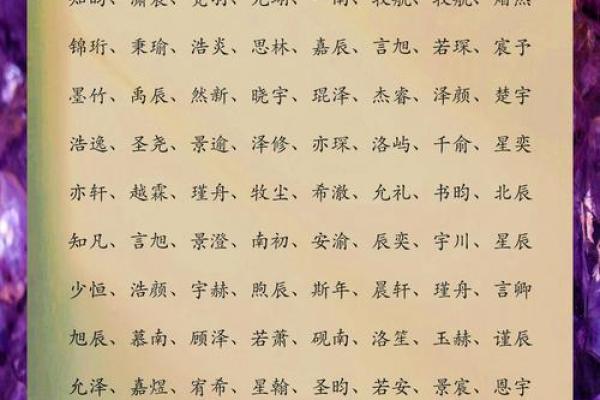 锦珩、秉瑜、浩炎、思林、嘉辰、言旭、若琛、宸予
墨竹、禹辰、然新、晓宇、琨泽、杰睿、泽颜、楚宇
浩逸、圣尧、景逾、泽修、亦琛、洛屿、千俞、星奕
亦轩、越霖、瑾舟、牧尘、希澈、允礼、书昀、北辰
知凡、言旭、景澄、南初、安渝、辰奕、宇川、星辰
少恒、浩颜、宇赫、煦辰、斯年、晨轩、瑾舟、言卿
旭辰、慕南、顾泽、若萧、砚南、洛笙、玉赫、谨辰
允泽、嘉煜、宥希、星翰、圣昀、若安、景宸、恩宇